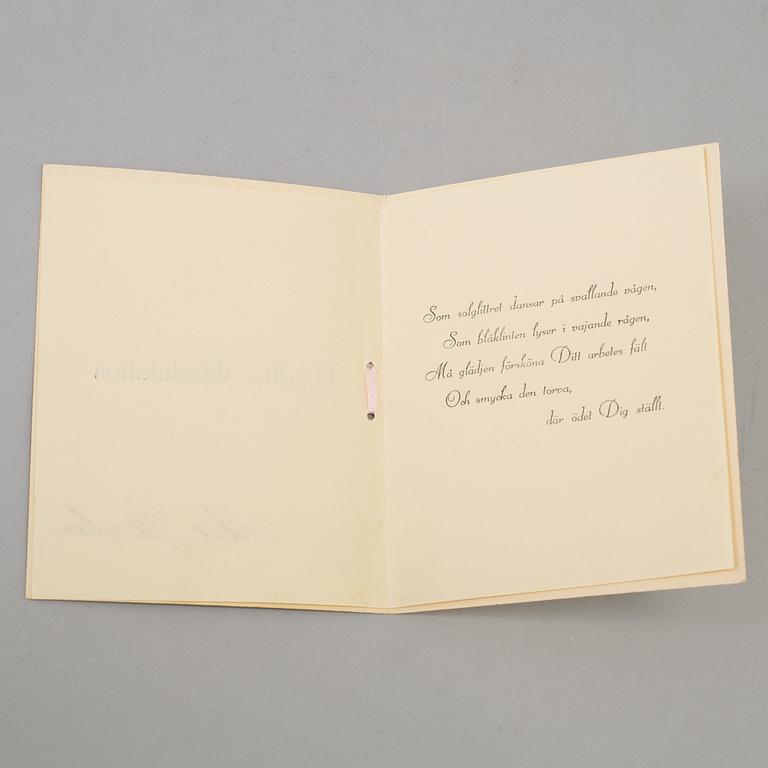 Hjärtlig Gratulation
Som solglittret dansar på svallande vågen,
Som blåklinten lyser i vajande rågen,
Må glädjen försköna Ditt arbetes fält
Och smycka den torva,
där ödet Dig ställt.